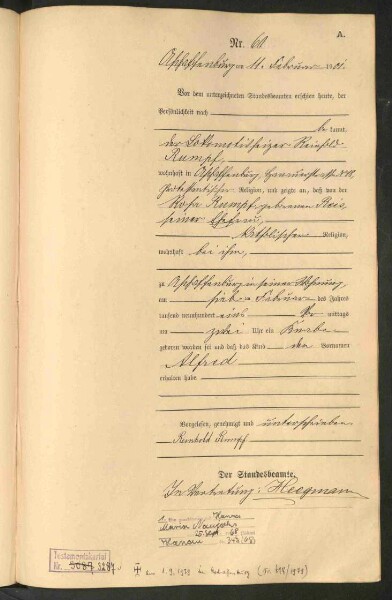 A.
Nr. 60
Aschaffenburg am 11. Februar 1901.
Vor dem unterzeichneten Standesbeamten erschien heute, der
Persönlichkeit nach
be kannt,
der Lokomotivheizer Reinhold
Rumpf,
wohnhaft in Aschaffenburg,
protestantischer Religion, und zeigte an, daß von der
Rosa Rumpf, gebornen Reis,
seiner Ehefrau,
katholischer Religion,
wohnhaft bei ihm,
zu Aschaffenburg in seiner Wohnung,
am Februar des Jahres
tausend neunhundert eins Vor mittags
um zwei Uhr ein Knabe
geboren worden sei und daß das Kind den Vornamen
Alfred
erhalten habe
Vorgelesen, genehmigt und unterschrieben
Reinhold Rumpf
Der Standesbeamte.
In Vertretung: Heegmann
Hanau
Testamentskartei
Nr. 3287